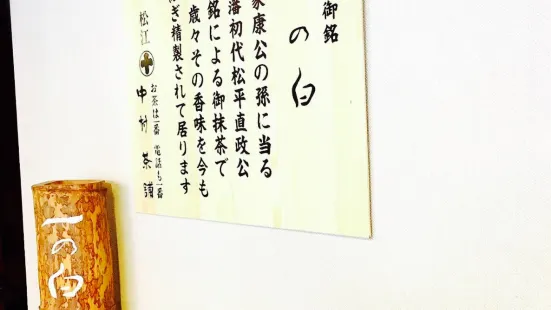 御銘
の白
家康公の孫に当る
藩初代松平直政公
銘による御抹茶で
歳々その香味を今も
ぎ精製されて居ります
松江
お茶は一番 電話も一番
中村茶舗
一の白